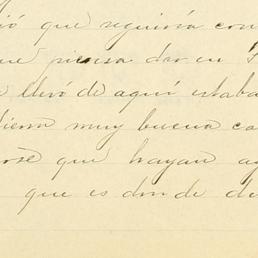 ió que seguiría con
ue piensa dar en
llevó de aquí estaba
dieron muy buena ca
ose que hayan
que es donde de